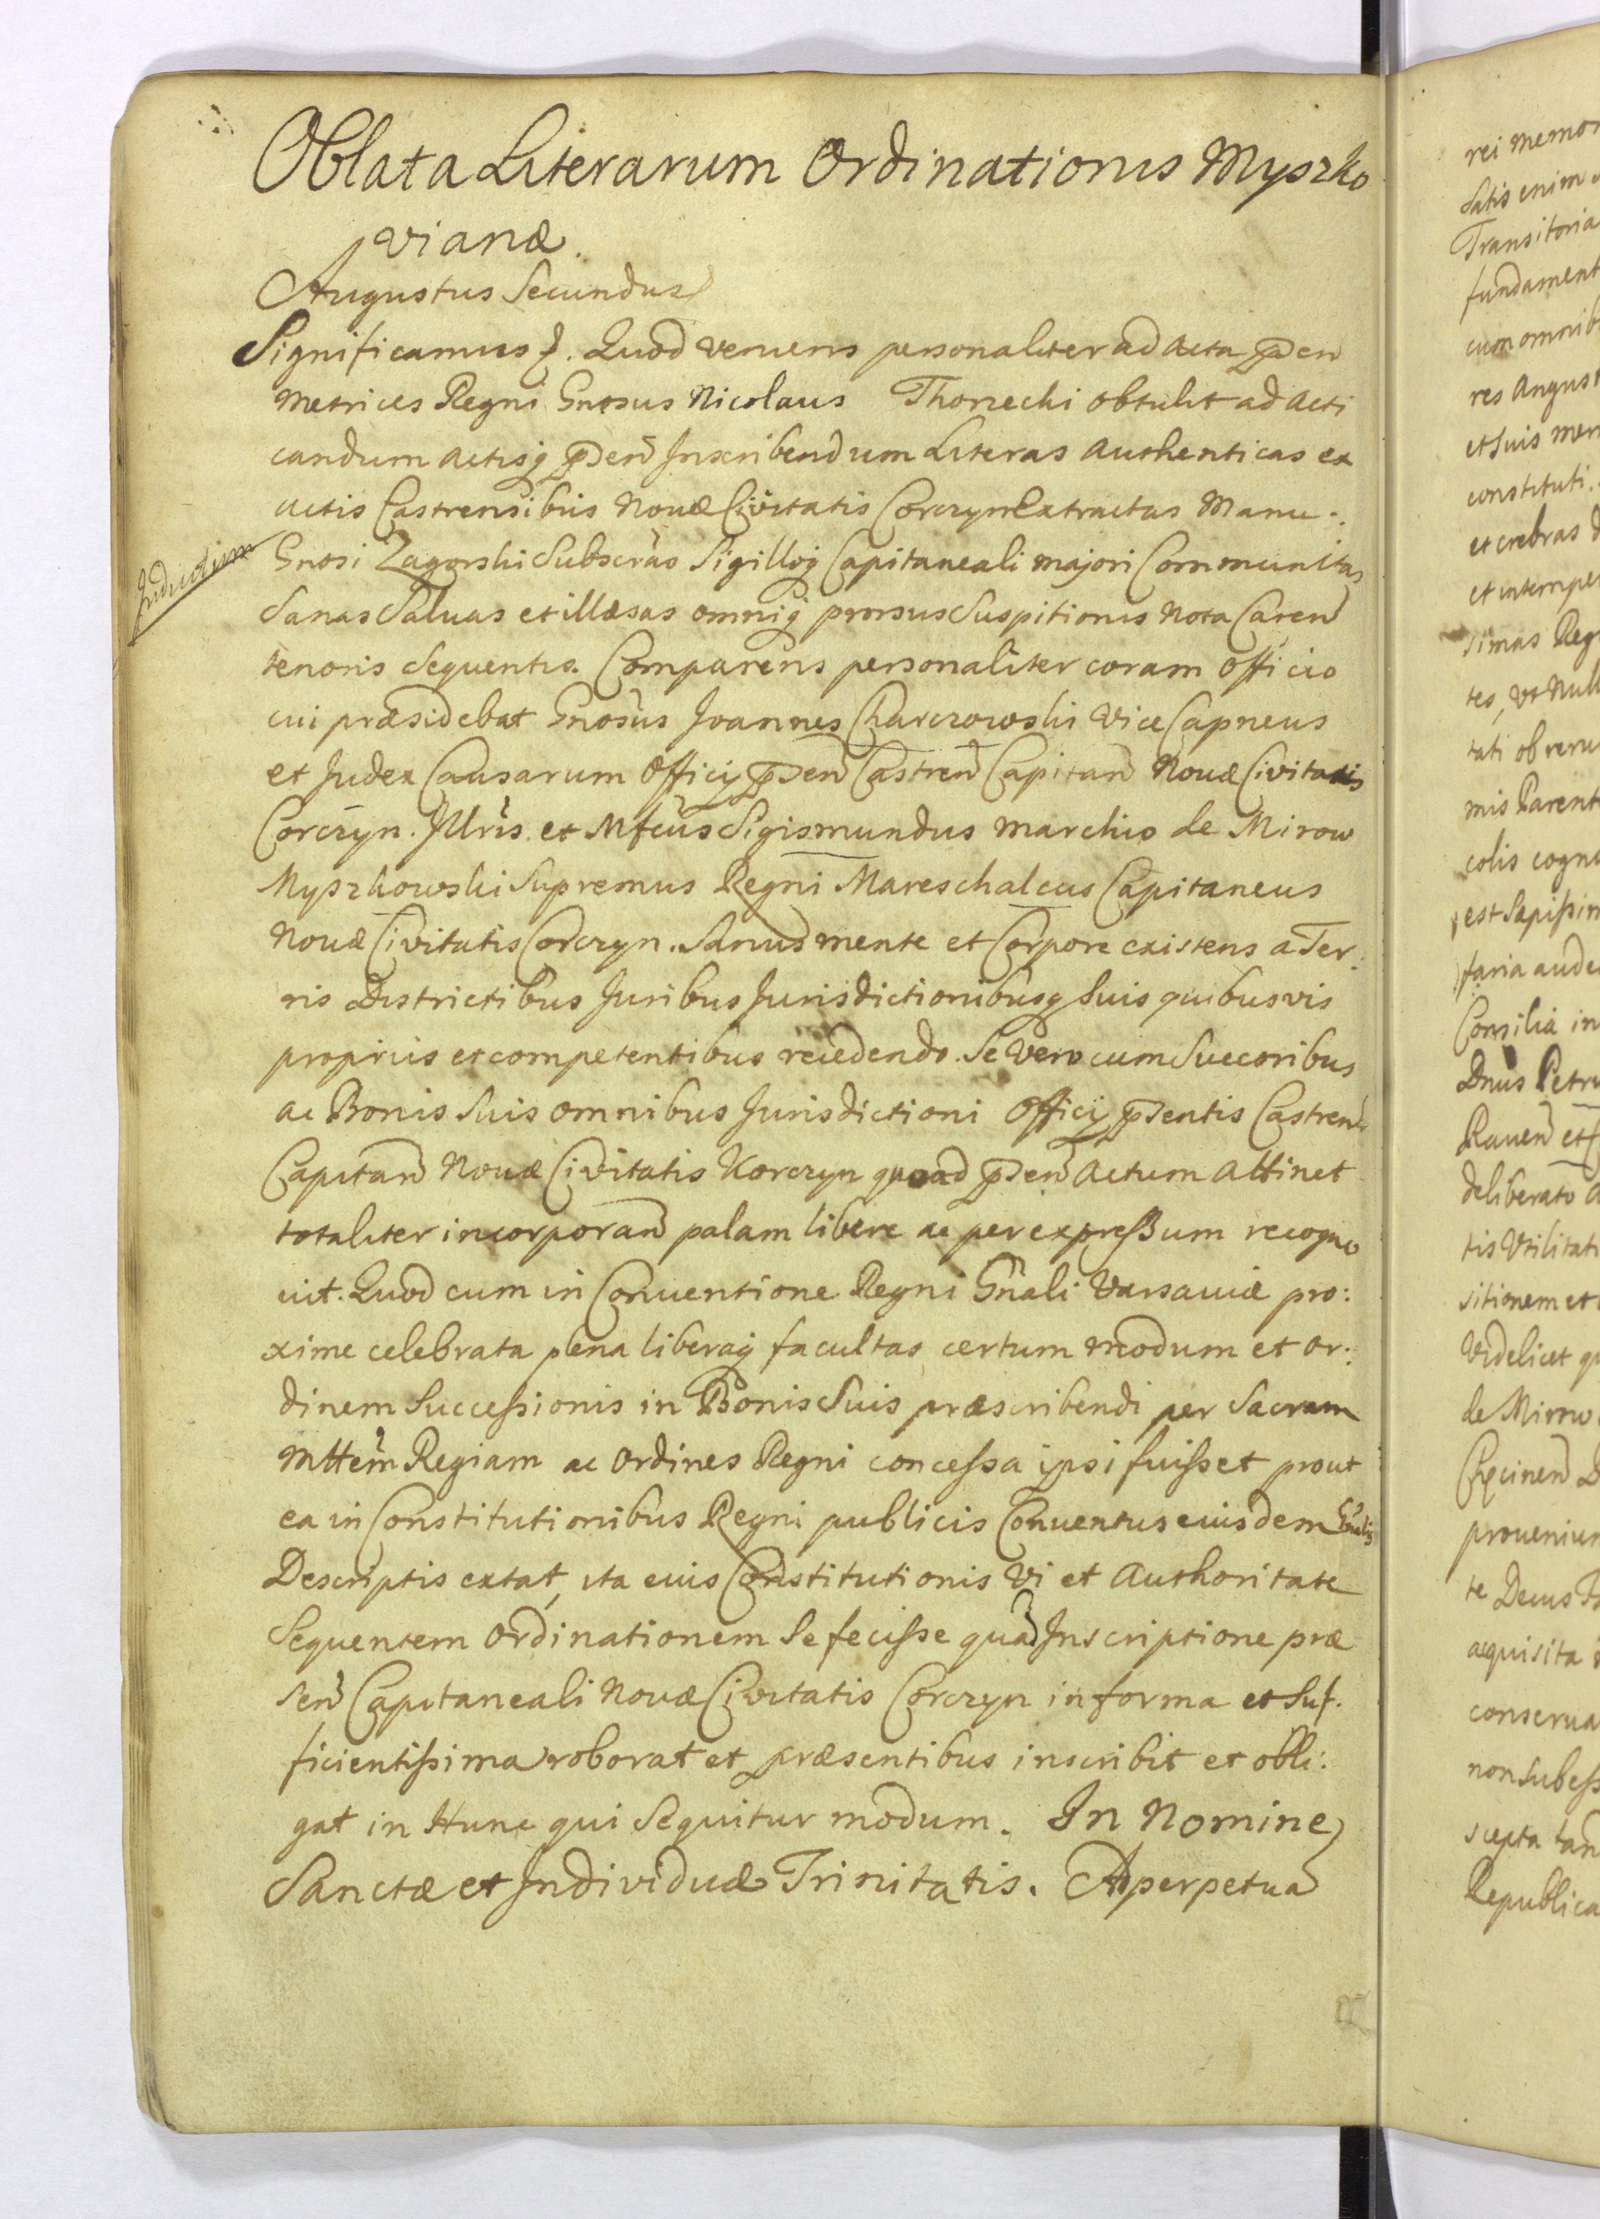 Oblata Literarum Ordinationis Myszko
vianæ.
Augustus Secundus
Significamus &. Quod veniens personaliter ad Acta p̃sen
Metrices Regni Gnosus Nicolaus Thorzecki obtulit ad Acti
candum Actisq p̃sen̄ Inscribendum Literas Authenticas ex
actis Castrensibus Novæ Civitatis Corczyn Extractas Manu
Induction
Gnosi Zagorski Subscr̃as Sigilloq Capitaneali majori Communitas
Sanas Salvas et illæsas omniq prorsus Suspitionis Nota Caren̄
tenoris Sequentis. Comparens personaliter coram Officio
cui præsidebat Gnosus Joannes Charczowski Vice Capneus
et Judex Causarum Officij p̃sen̄ Castren̄ Capitan̄ Novæ Civitatis
Corczyn. Jllris. et Mfcus Sigismundus Marchio de Mirow
Myszkowski Supremus Regni Mareschalcus Capitaneus
Novæ Civitatis Corczyn. Sanus mente et Corpore existens a Ter:
ris Districtibus Juribus Jurisdictionibusq suis quibusvis
propriis et competentibus recedendo. Se Vero cum Succoribus
ac Bonis Suis omnibus Jurisdictioni Officij p̃sentis Castren̄
Capitan̄ Novæ Civitatis Korczyn quoad p̃sen̄ Actum Attinet
totaliter incorporan̄ palam libere ac per expressum recogno
vit. Quod cum in Conventione Regni Gñali Varsaviæ pro:
xime celebrata plena liberaq facultas certum modum et or:
dinem Successionis in Bonis Suis præscribendi per Sacram
Mttem Regiam ac Ordines Regni concessa ipsi fuisset prout
ea in Constitutionibus Regni publicis Conventus eiusdem Gñalis
Descriptis extat, ita eius Constitutionis Vi et Authoritate
Sequentem Ordinationem Se fecisse quam Inscriptione præ
sen̄ Capitaneali Novæ Civitatis Corczyn in forma et Suf:
ficientissima roborat et præsentibus inscribit et obli:
gat in Hunc qui Sequitur modum. In Nomine
Sanctæ et Individuæ Trinitatis. Ad perpetua
rei memor
Satis enim
Transitoria
fundament
cum omnib
res Angust
et Suis mem
constituti.
et crebras d
et intempe
simas Reg
tes, Vt Null
tati ob reru
mis Parent
colis cogn
est Sapissim
faria aude
Consilia in
Dnus Petru
Raven̄ et
deliberato a
tis Vtilitati
sitionem et
Videlicet qu
de Mirow
Chęcinen̄ D
proveniun
te Decus
acquisita
conserva
non Subess
scepta tan̄
Republica